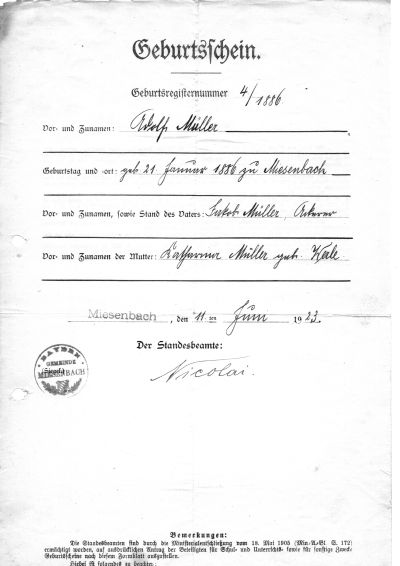 Geburtsschein.
Geburtsregisternummer 4/1886
Vor- und Zunamen: Adolf Müller
Geburtstag und -ort: geb. 21. Januar 1886 zu Miesenbach
Vor- und Zunamen, sowie Stand des Vaters: Jakob Müller, Ackerer
Vor- und Zunamen der Mutter: Katharina Müller geb.
Miesenbach, den 11. ten Juni 1923.
Der Standesbeamte:
BAYERN
GEMEINDE
(Siegel)
MIESENBACH
Nicolai.
Bemerkungen:
Die Standesbeamten sind durch die Ministerialentschließung vom 18. Mai 1905 (Min-A-Bl S. 172)
ermächtigt worden, auf ausdrücklichen Antrag der Beteiligten für Schul- und Unterrichts- sowie für sonstige Zwecke
Geburtsscheine nach diesem Formblatt auszustellen.
Hiebei ist folgendes zu beachten: